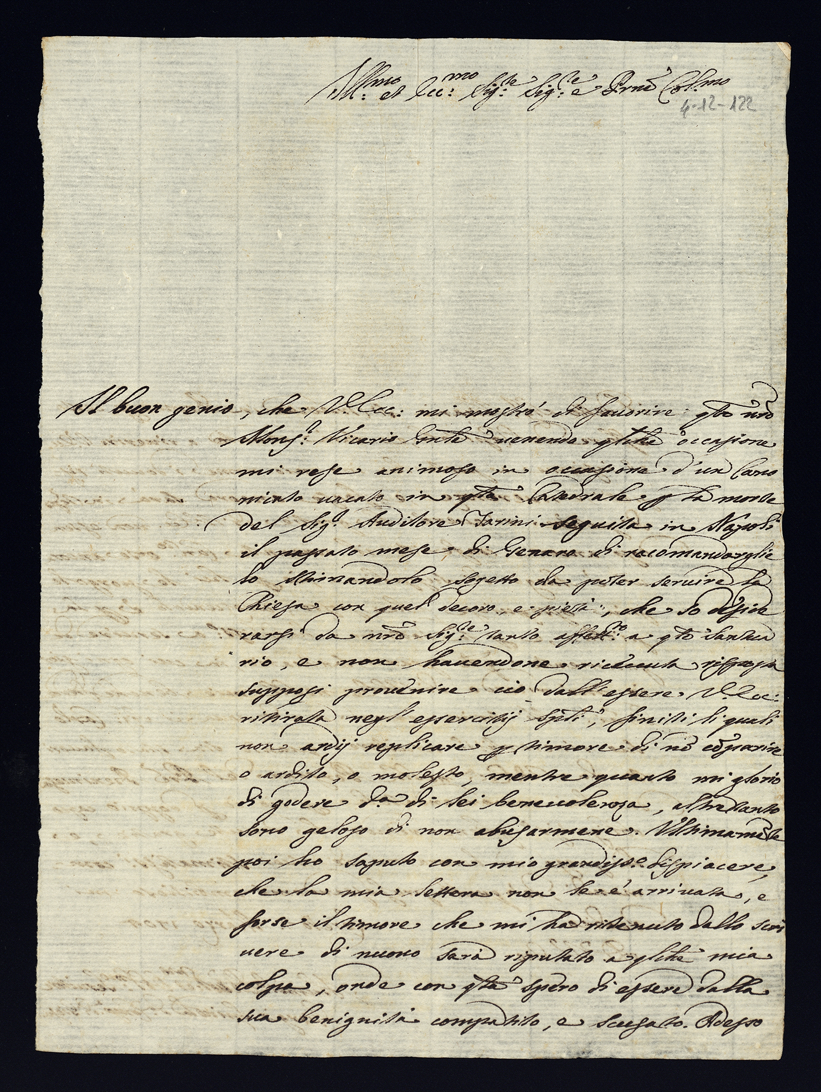 Ill.mo et Ecc.mo Sig.re Sig.re e P.rne Col.mo
4-12-122
Il buon genio, che V. Ecc: mi mostrò di favorire q.to nr̃o
Mons.r Vicario Gnãle venendo q.lche occasione
mi rese animoso in occasione d'un Cano
nicato vacato in q.ta Catedrale p la morte
del Sig.r Auditore Farini seguita in Napoli
il passato mese di Genaro di racomandarglie
lo stimandolo sogetto da poter servire la
Chiesa con quel decoro, e pietà, che so deside
rarsi da nr̃o Sig.re tanto affett.o a q.to Santua
rio, e non havendone riceuuta risposta
supposi prouenire ciò dall'essere V. Ecc:
ritirata negl'essercitij spĩli, finiti li quali
non ardij replicare p timore di nõ cõparire
o ardito, o molesto, mentre quanto mi glorio
di godere d.a di lei beneuolenza, altretanto
sono geloso di non abusarmene. Ultimam.te
poi ho saputo con mio grandiss.o dispiacere,
che la mia lettera non le è arrivata, e
forse il timore che mi ha ritenuto dallo scri
uere di nuouo sarà riputato a q.lche mia
colpa, onde con q.ta spero di essere dalla
sua benignità compatito, e scusato. Adesso